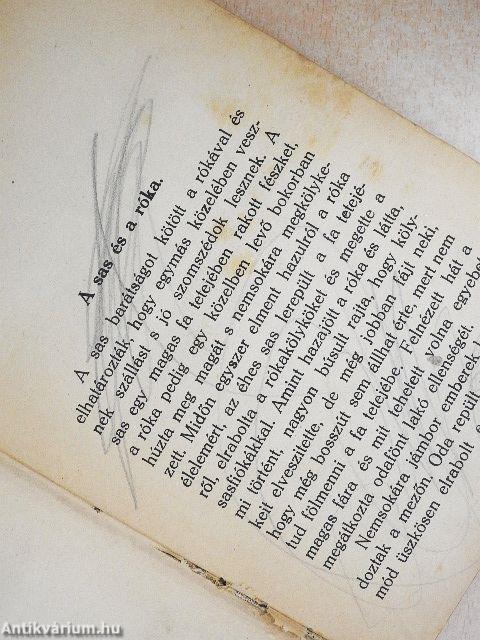 A sas és a róka.
A sas barátságot kötött a rókával és
elhatározták, hogy egymás közelében vesz-
nek szállást s jó szomszédok lesznek. A
sas egy magas fa tetejében rakott fészket,
a róka pedig egy közelben levő bokorban
húzta meg magát s nemsokára megkölyke-
zett. Midőn egyszer elment hazulról a róka
élelemért, az éhes sas lerepült a fa tetejé-
ről, elrabolta a rókakölyköket és megette a
sasfiókákkal. Amint hazajött a róka és látta,
mi történt, nagyon búsult rajta, hogy köly-
keit elveszítette, de még jobban fájt neki,
hogy még bosszút sem állhat érte, mert nem
tud fölmenni a fa tetejébe. Felnézett hát a
magas fára és mit tehetett volna egyebet
megátkozta odafönt lakó ellenségét.
Nemsokára jámbor emberek
doztak a mezőn. Oda repült
mód üszkösen elrabolt
Antikvárium.hu